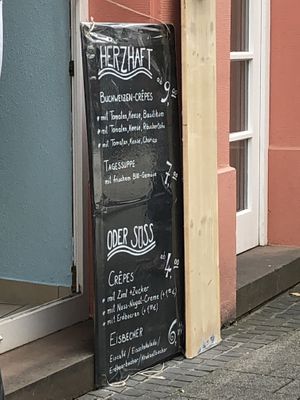 HERZHAFT
ab 9,00
BUCHWEIZEN-CRÊPES
• mit Tomaten, Kaese, Basilikum
• mit Tomaten, Kaese,
• mit Tomaten, Kaese, Chorizo
TAGESSUPPE
mit frischem BIO-Gemüse
ODER SÜSS
ab 4,00
CRÊPES
• mit Zimt + Zucker
• mit Nuss-Nugat-Creme
• mit Erdbeeren
EISBECHER
Eiscafé / Eisschokolade /
Erdbeerbecher /